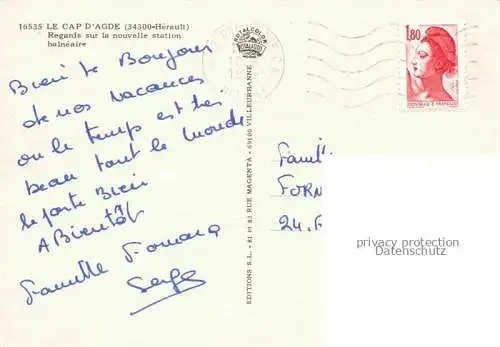 16535 LE CAP D'AGDE (34300-Hérault)
Regards sur la nouvelle station
balnéaire
Bien le Bonjour
de nos vacances
ou le temps est très
beau tout le monde
se porte Bien
A Bientôt
Famille
Serge
EDITIONS S.L. - 81 et 83 RUE MAGENTA - 69100 VILLEURBANNE
ROYALCOLOR
1,80
Famil
FORN
24.
privacy protection
Datenschutz